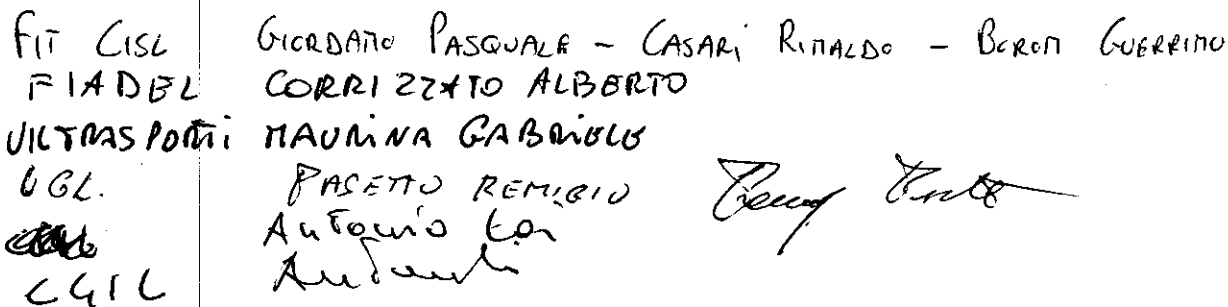 FIT CISL GIORDANO PASQUALE - CASARI RINALDO - BORON GUERRINO
FIADEL CORRIZZATO ALBERTO
UILTRASPORTI MAURINA GABRIELE
UGL. PASETTO REMIGIO
Antonio
CGIL